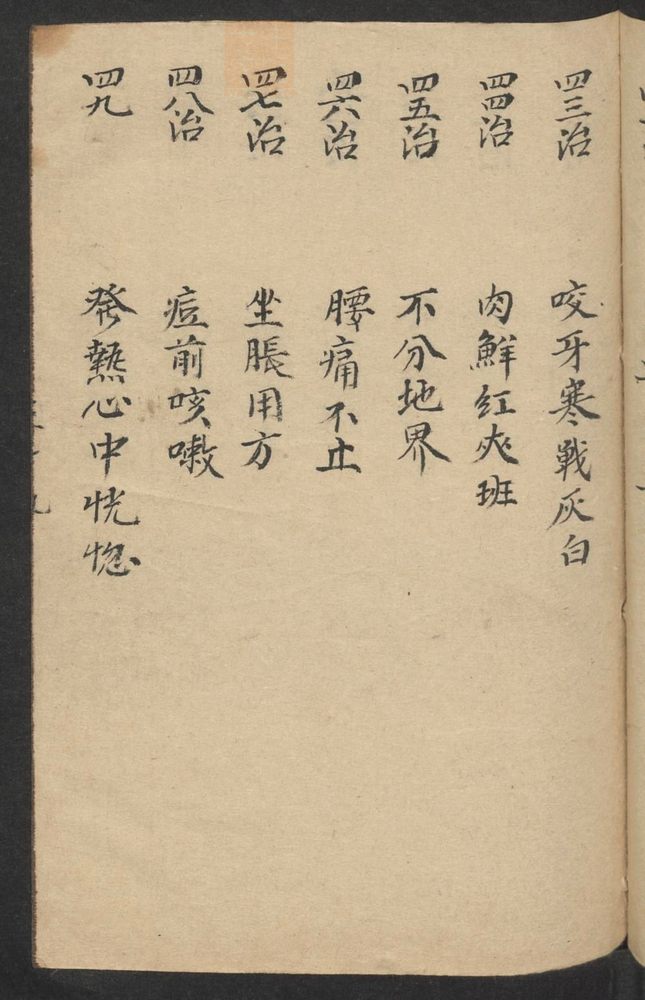 四三治 咬牙寒戰灰白
四四治 肉鮮紅夾班
四五治 不分地界
四六治 腰痛不止
四七治 坐脹用方
四八治 痘前咳嗽
四九 發熱心中恍惚